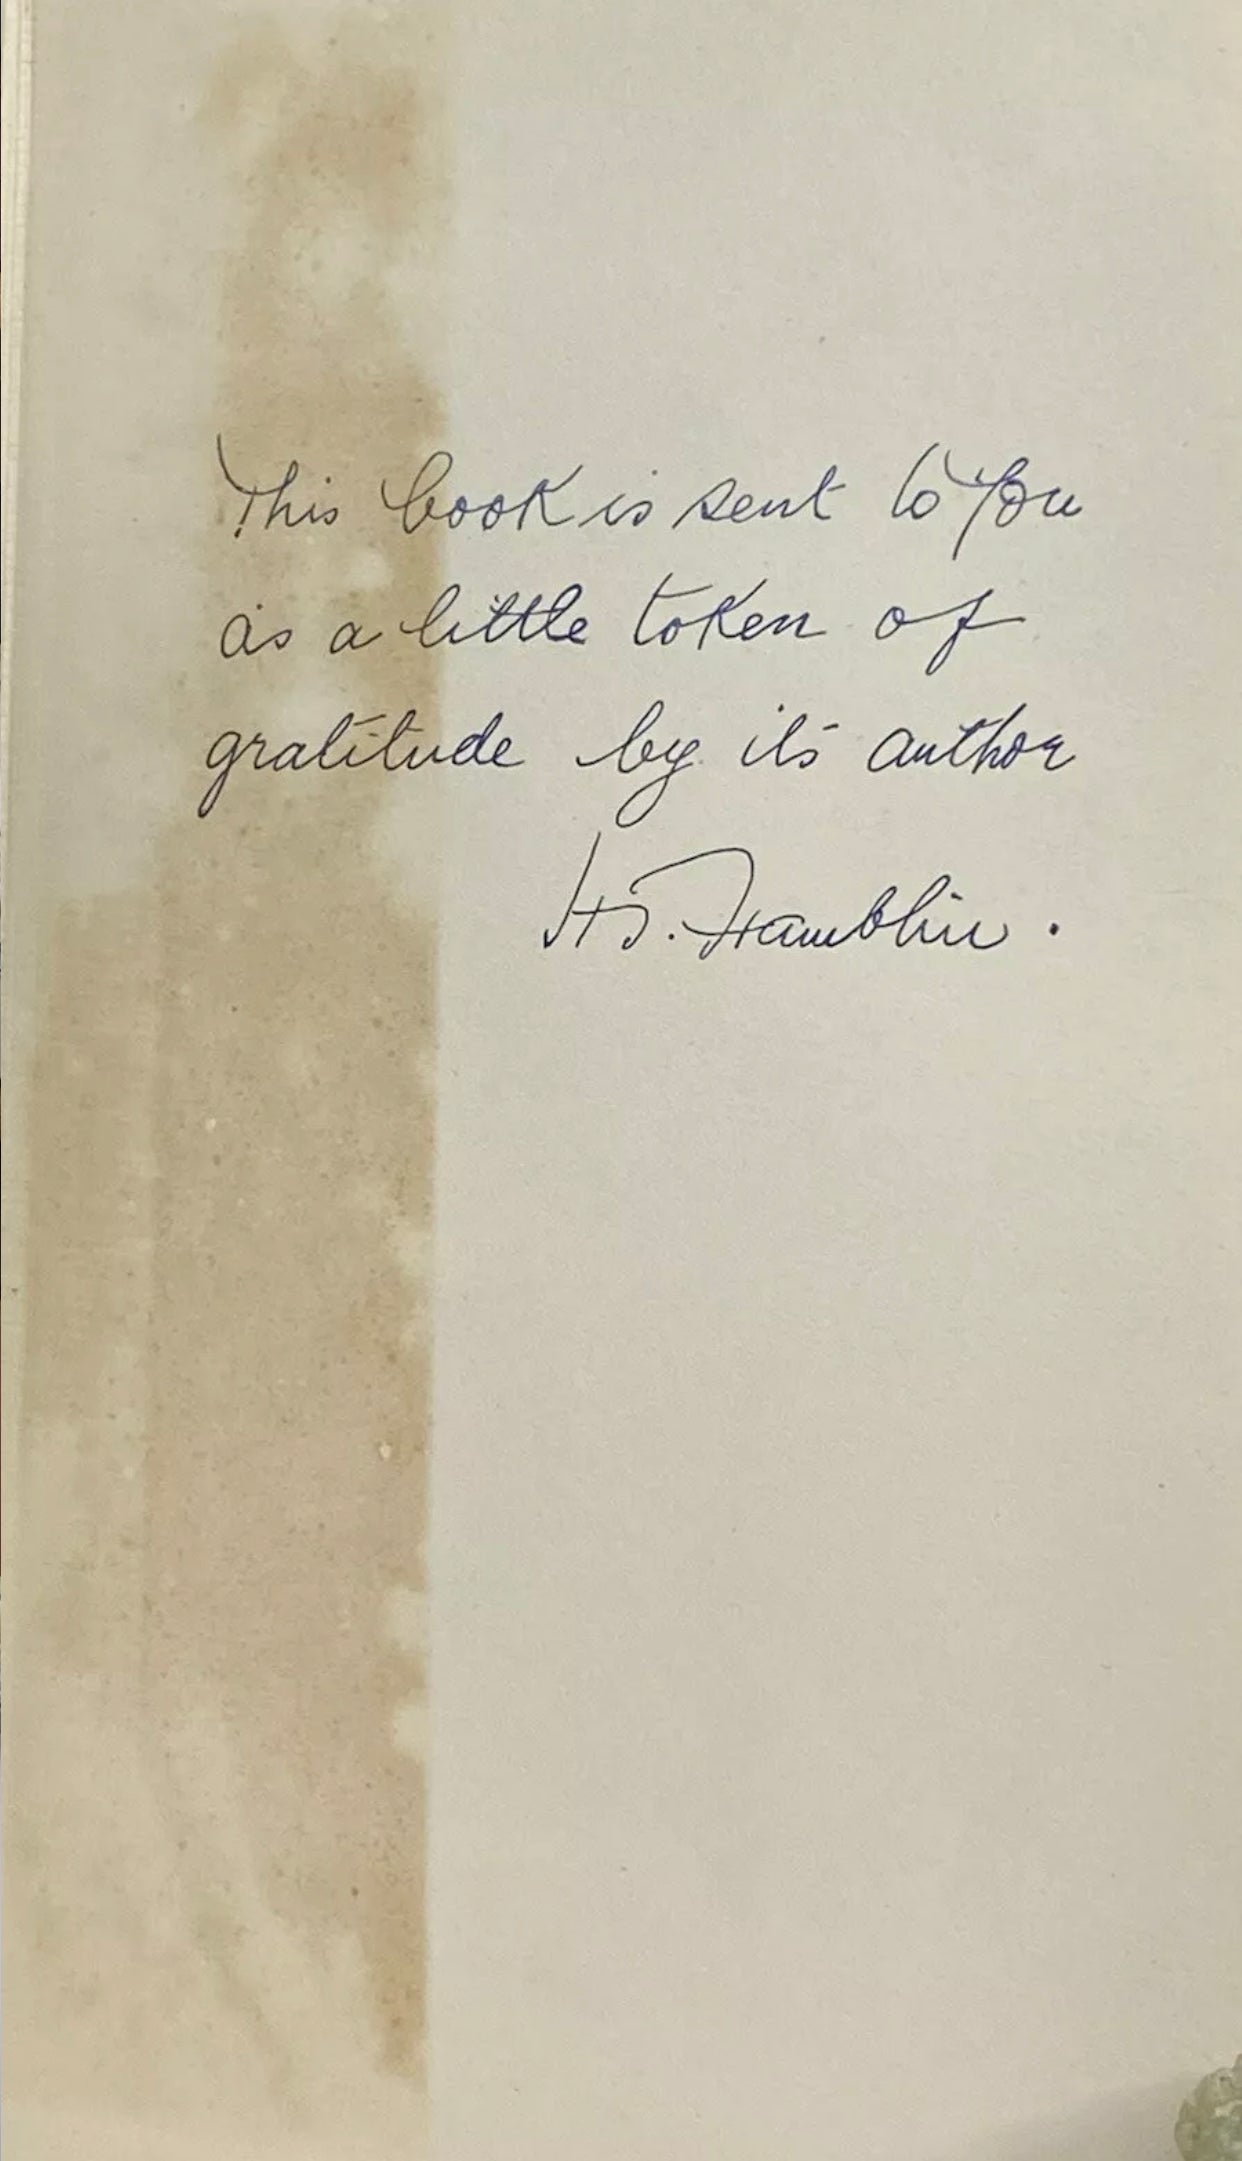 This book is sent to You
as a little token of
gratitude by its author